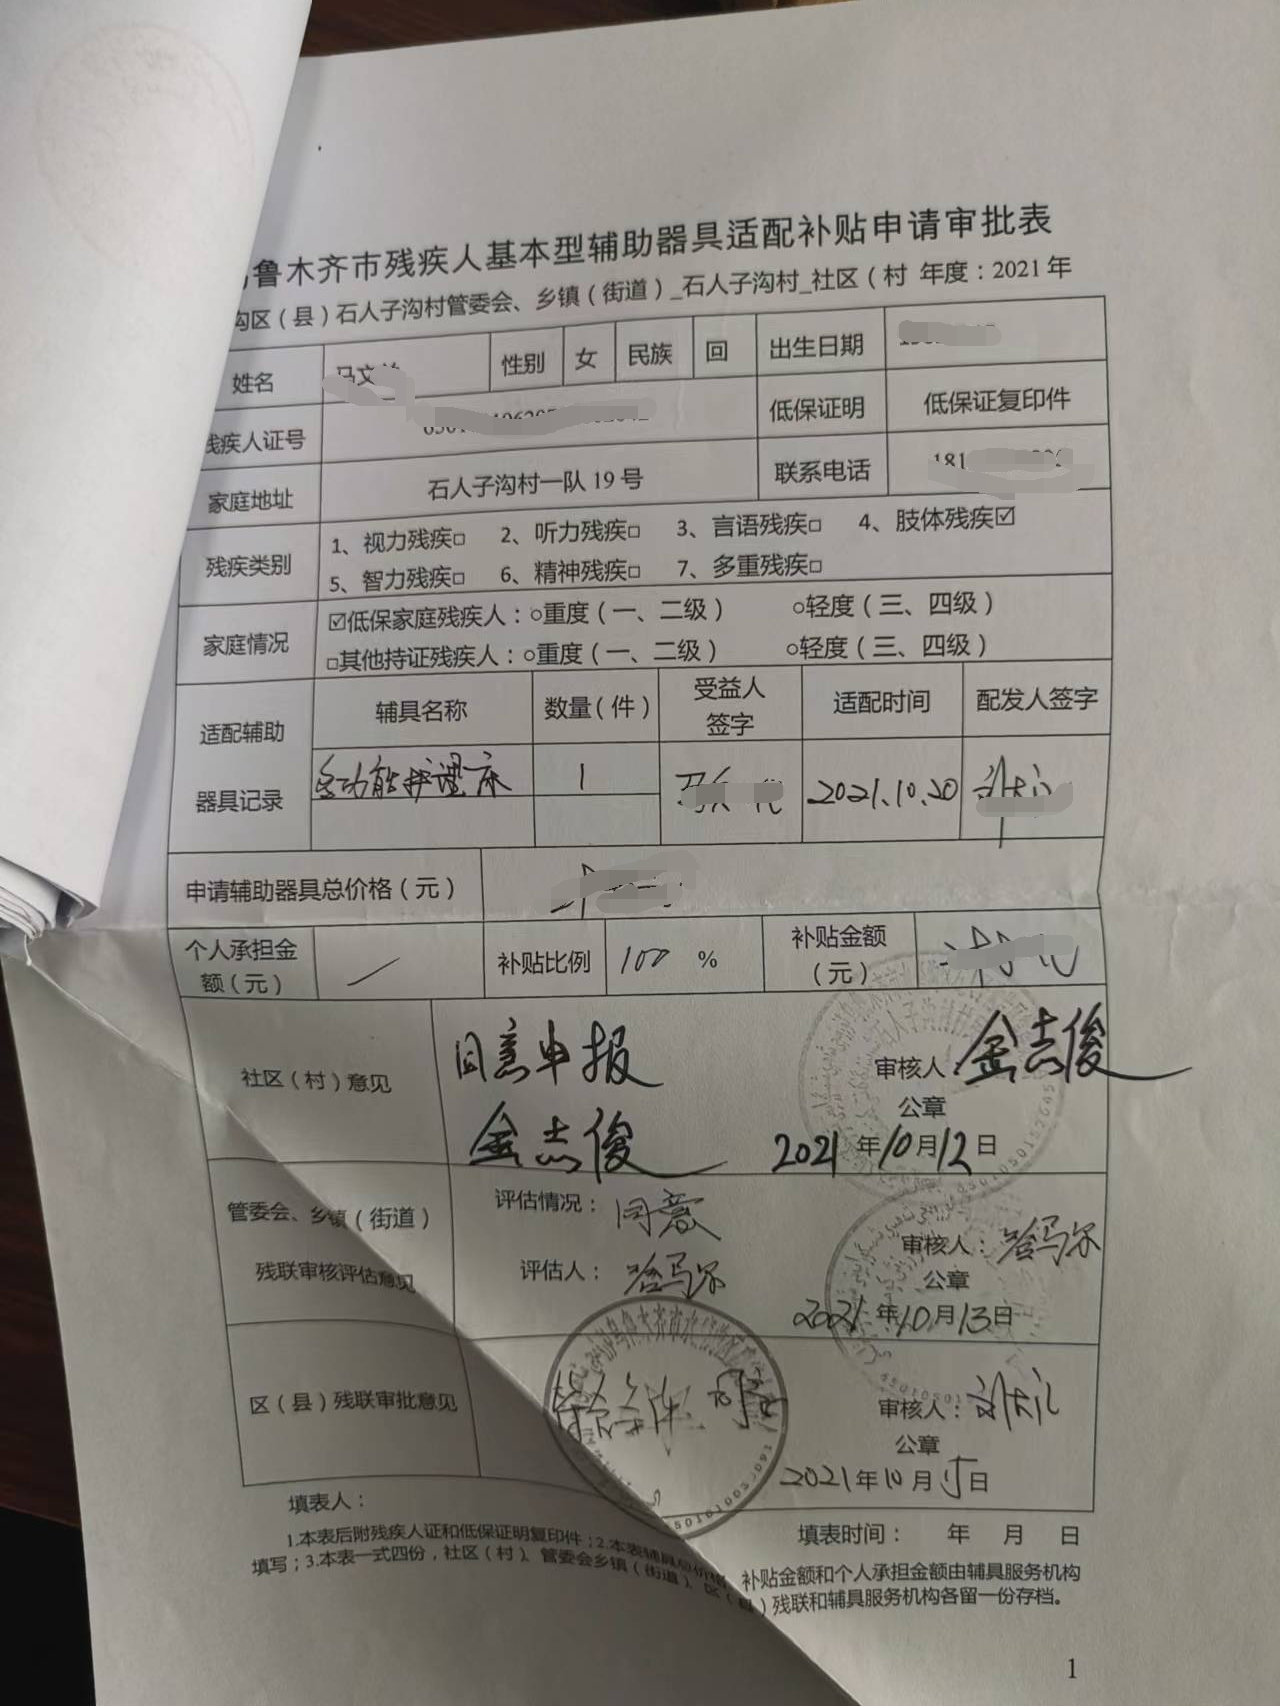 鲁木齐市残疾人基本型辅助器具适配补贴申请审批表
沟区（县）石人子沟村管委会、乡镇（街道）_石人子沟村_社区（村 年度：2021年
姓名 马文 性别 女 民族 回 出生日期
残疾人证号 低保证明 低保证复印件
家庭地址 石人子沟村一队19号 联系电话 181
残疾类别 1、视力残疾□ 2、听力残疾□ 3、言语残疾□ 4、肢体残疾☑
5、智力残疾□ 6、精神残疾□ 7、多重残疾□
家庭情况 ☑低保家庭残疾人：○重度（一、二级） ○轻度（三、四级）
□其他持证残疾人：○重度（一、二级） ○轻度（三、四级）
适配辅助器具记录 辅具名称 数量（件） 受益人签字 适配时间 配发人签字
多功能护理床 1 2021.10.20
申请辅助器具总价格（元）
个人承担金额（元） 补贴比例 100 % 补贴金额（元）
社区（村）意见 同意申报 审核人 金志俊
公章
金志俊 2021年10月12日
管委会、乡镇（街道）残联审核评估意见 评估情况：同意 审核人：哈马尔
评估人：哈马尔 公章
2021年10月13日
区（县）残联审批意见 审核人：
公章
2021年10月15日
填表人： 填表时间： 年 月 日
1.本表后附残疾人证和低保证明复印件；2.本表辅具总价格、补贴金额和个人承担金额由辅具服务机构
填写；3.本表一式四份，社区（村）、管委会乡镇（街道）、区（县）残联和辅具服务机构各留一份存档。
1